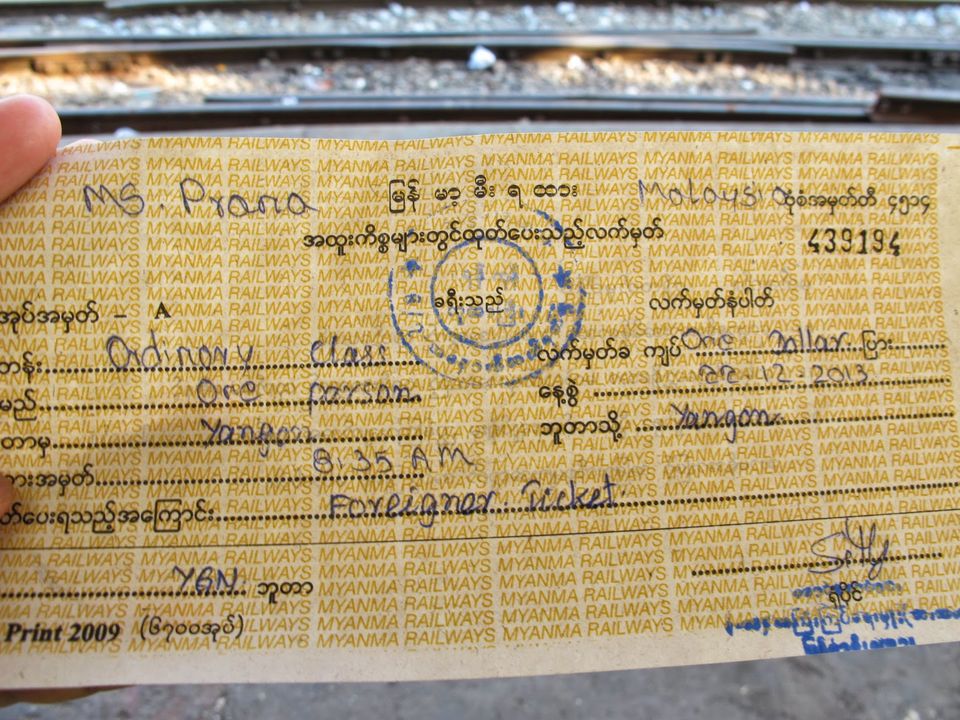 Ms. Prana မြန် မာ့ မီး ရ ထား Malaysi ဘုံစံအမှတ်တီ ၄၅၁၄
အထူးကိစ္စများတွင်ထုတ်ပေးသည့်လက်မှတ် 439194
ခရီးသည် လက်မှတ်နံပါတ်
အုပ်အမှတ် - A
တန်း Ordinary Class လက်မှတ်ခ ကျပ် One Dollar ပြား
မည် One person နေ့စွဲ 22 12 2013
တာမှ Yangon ဘူတာသို့ Yangon
ားအမှတ် 8:35 AM
တ်ပေးရသည့်အကြောင်း Foreigner Ticket
YGN ဘူတာ
ရုံပိုင်
Print 2009 (၆၇၀၀အုပ်)
MYANMA RAILWAYS